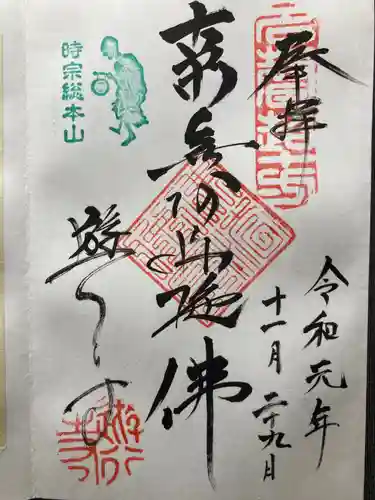 奉拝
令和元年
十一月二十九日
南無阿弥陀佛
遊行寺
時宗総本山